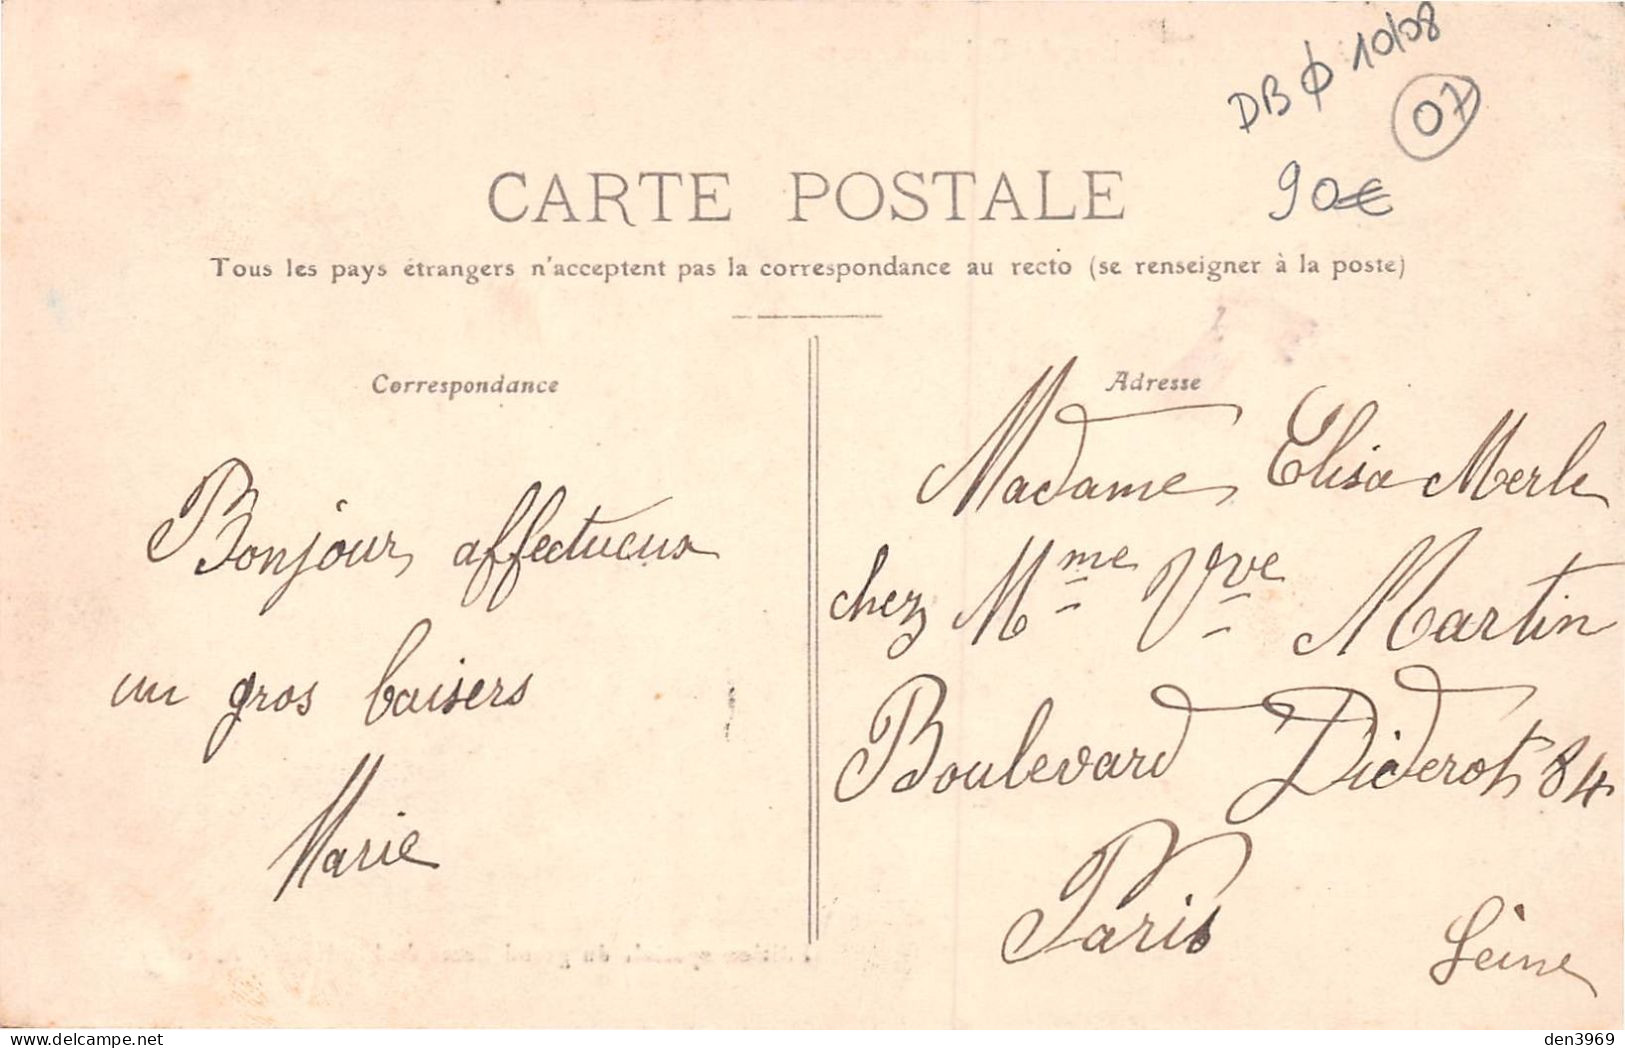 DB ϕ 10/08
07
90€
CARTE POSTALE
Tous les pays étrangers n'acceptent pas la correspondance au recto (se renseigner à la poste)
Correspondance
Bonjour affectueux
un gros baisers
Marie
Adresse
Madame Elisa Merle
chez Mme Vve Martin
Boulevard Diderot 84
Paris
Seine
den3969